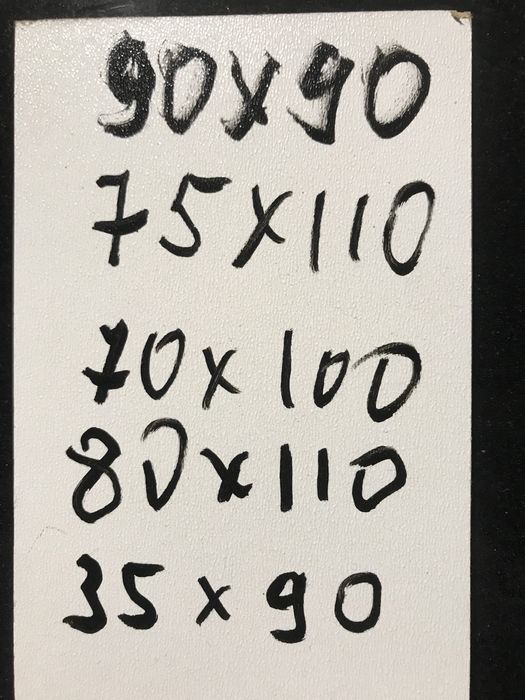 90x90
75x110
70x100
80x110
35x90